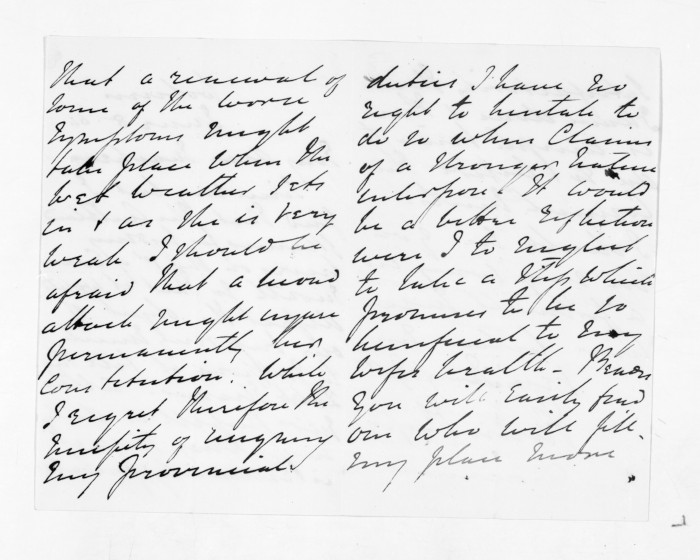 that a renewal of
some of the worse
symptoms might
take place when the
wet weather sets
in & as she is very
weak I should be
afraid that a second
attack might injure
permanently her
Constitution. While
I regret therefore the
necessity of resigning
my Provincial
duties I have no
right to hesitate to
do so when Claims
of a stronger nature
interpose. It would
be a bitter reflection
were I to neglect
to take a step which
promises to be so
beneficial to my
Wifes health –
You will easily find
one who will fill
my place more